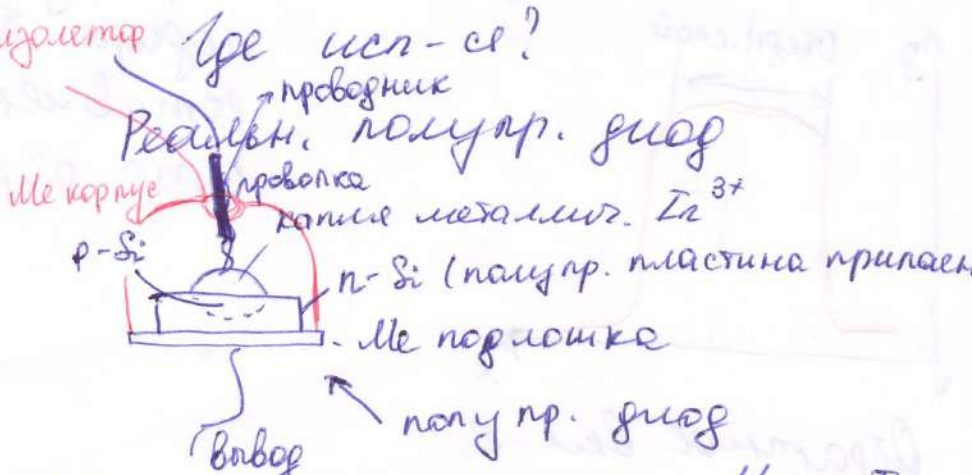 изолетор
Где исп-ся?
проводник
Реальн. полупр. диод
Ме корпус
проволка
капля металлич. In³⁺
p-Si
n-Si (полупр. пластина припаен
Ме подложка
полупр. диод
вывод